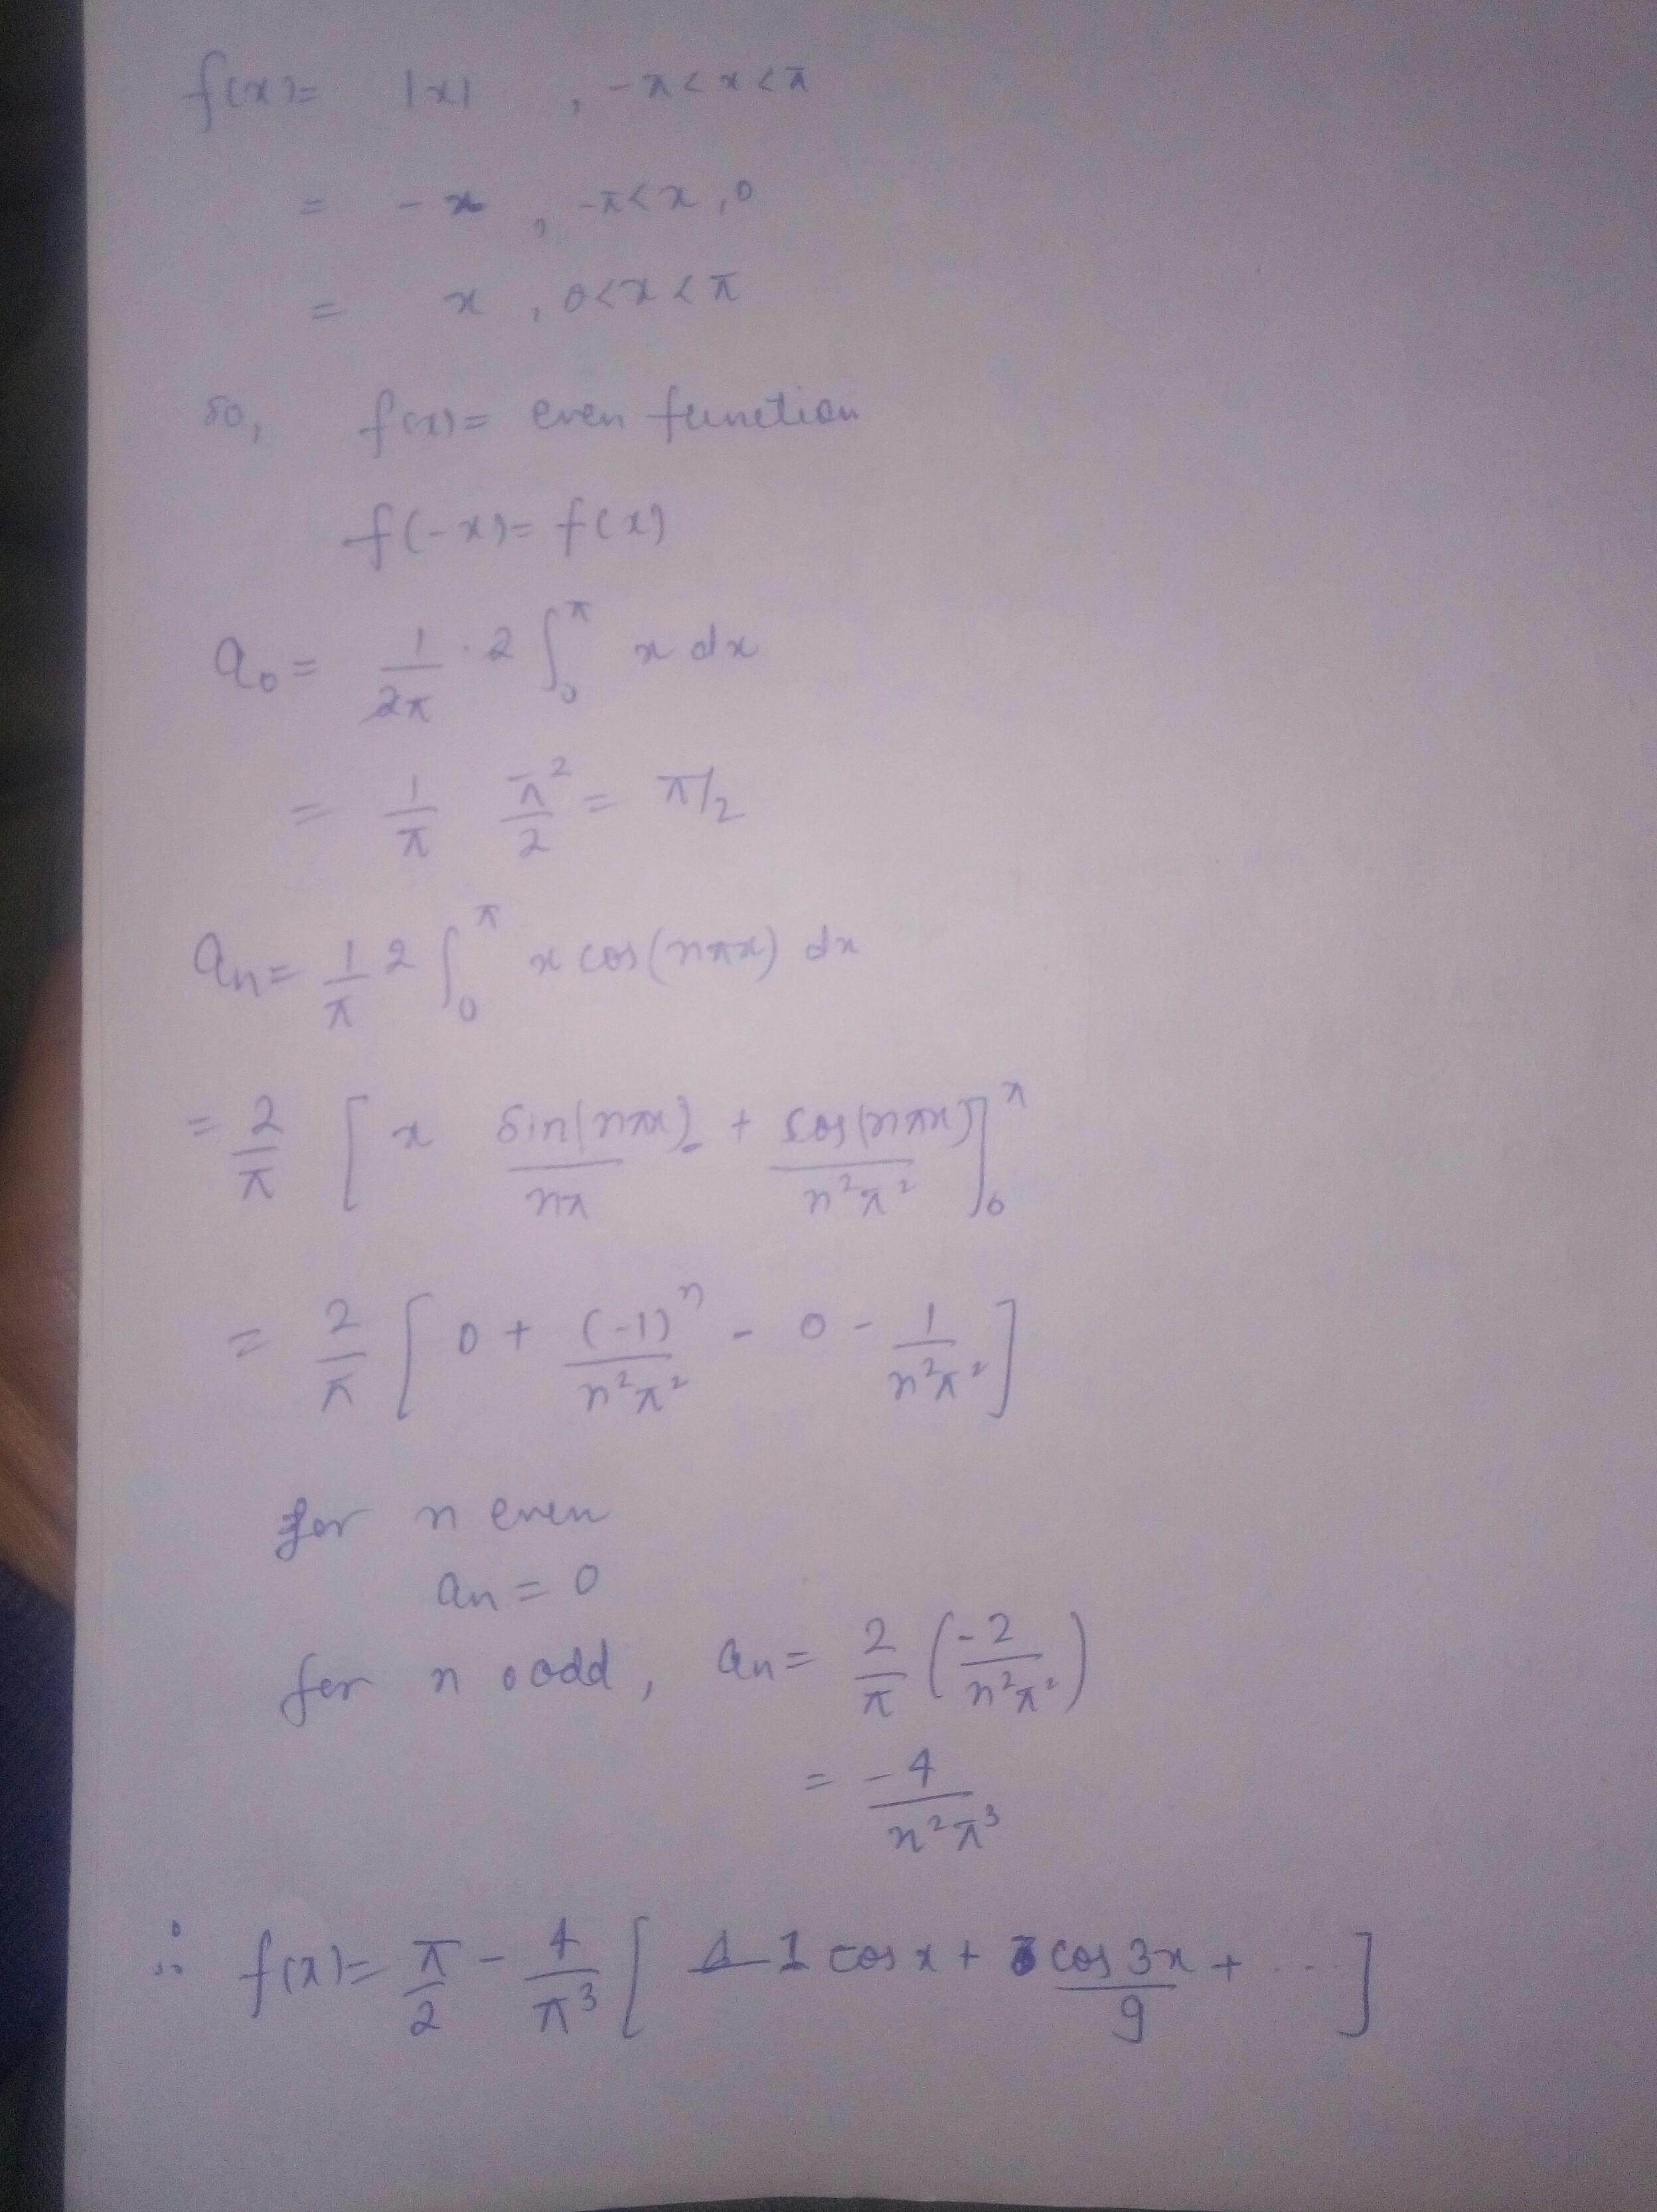 f(x)= |x| , -π<x<π
= -x , -π<x,0
= x , 0<x<π
so, f(x)= even function
f(-x)= f(x)
a₀= 1/2π · 2 ∫₀^π x dx
= 1/π π²/2 = π/2
aₙ= 1/π 2 ∫₀^π x cos(nπx) dx
= 2/π [ x sin(nπx)/nπ + cos(nπx)/n²π² ]₀^π
= 2/π [ 0 + (-1)ⁿ/n²π² - 0 - 1/n²π² ]
for n even
aₙ = 0
for n odd, aₙ= 2/π (-2/n²π²)
= -4/n²π³
∴ f(x)= π/2 - 4/π³ [ 1 cos x + cos 3x/9 + ... ]